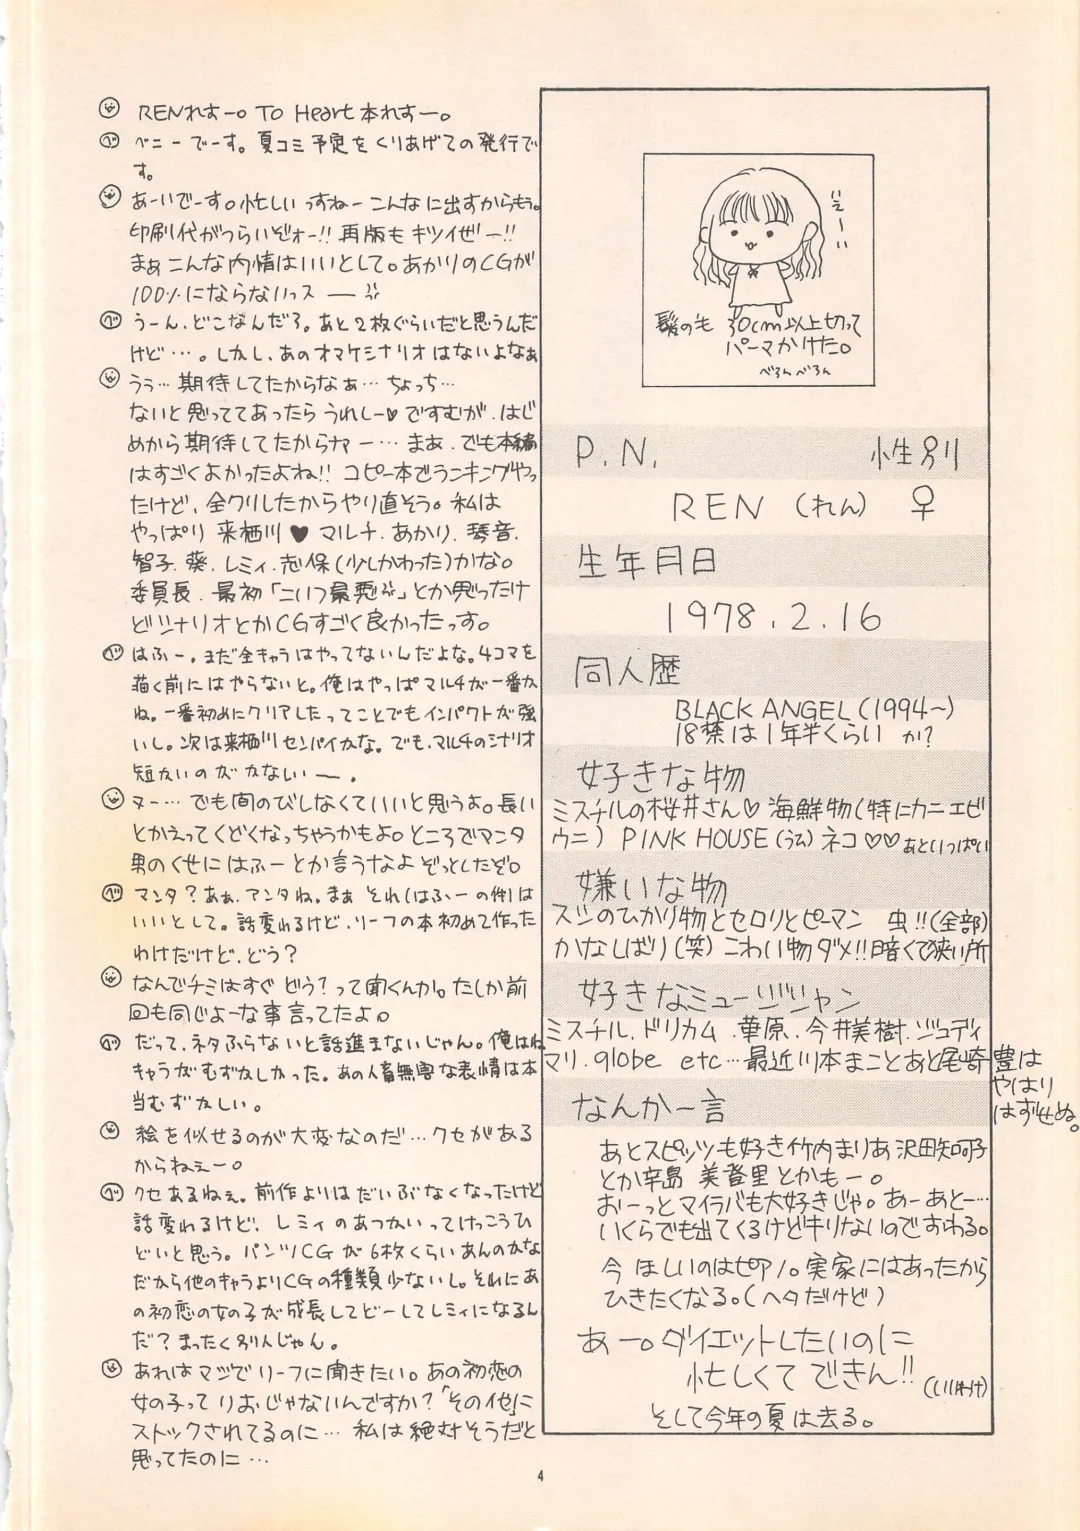 RENれすー。To Heart本れすー。
ベニーでーす。夏コミ予定をくりあげての発行で
す。
あーいでーす。忙しいっすねーこんなに出すからもう。
印刷代がつらいぞォー!!再版もキツイぜー!!
まぁこんな内情はいいとして。あかりのCGが
100%にならないっスー
うーん、どこなんだろ。あと2枚ぐらいだと思うんだ
けど…。しかし、あのオマケシナリオはないよなぁ
うぅ…期待してたからなぁ…ちょっち…
ないと思っててあったらうれしー♥ですむが、はじ
めから期待してたからナァー…まぁ、でも本編
はすごくよかったよね!!コピー本でランキングやっ
たけど、全クリしたからやり直そう。私は
やっぱり来栖川♥マルチ.あかり.琴音.
智子.葵.レミィ.志保(少しかわった)かな。
委員長.最初「こいつ最悪」とか思ったけ
どシナリオとかCGすごく良かったっす。
はふー.まだ全キャラはやってないんだよな。4コマを
描く前にはやらないと。俺はやっぱマルチが一番か
ね。一番初めにクリアしたってことでもインパクトが強
いし。次は来栖川センパイかな。でも、マルチのシナリオ
短かいのがかなしいー.
ヌー…でも間のびしなくていいと思うよ。長い
とかえってくどくなっちゃうかもよ。ところでマンタ
男のくせにはふーとか言うなよ ぞっとしたぞ。
マンタ?あぁ、アンタね。まぁそれ(はふーの件)は
いいとして。話変わるけど、リーフの本初めて作った
わけだけど、どう?
なんでチミはすぐどう?って聞くんか。たしか前
回も同じよーな事言ってたよ。
だって、ネタふらないと話進まないじゃん。俺はね
キャラがむずかしかった。あの人畜無害な表情は本
当むずかしい。
絵を似せるのが大変なのだ…クセがある
からねぇー。
クセあるねぇ。前作よりはだいぶなくなったけど
話変わるけど、レミィのあつかいってけっこうひ
どいと思う。パンツCGが6枚くらいあんのかな
だから他のキャラよりCGの種類少ないし。それにあ
の初恋の女の子が成長してどーしてレミィになるん
だ?まったく別人じゃん。
あれはマジでリーフに聞きたい。あの初恋の
女の子ってりおじゃないんですか?「その他」に
ストックされてるのに…私は絶対そうだと
思ってたのに…
いぇーい
髪のも 30cm以上切って
パーマかけた。
べろんべろん
P.N. 性別
REN (れん) ♀
生年月日
1978.2.16
同人歴
BLACK ANGEL(1994~)
18禁は1年半くらい か?
好きな物
ミスチルの桜井さん♡ 海鮮物(特にカニエビ
ウニ) PINK HOUSE(うむ)ネコ♡♡あといっぱい
嫌いな物
スシのひかり物とセロリとピーマン 虫!!(全部)
かなしばり(笑)こわい物ダメ!!暗くて狭い所
好きなミュージシャン
ミスチル.ドリカム.華原.今井美樹.ジュディ
マリ.globe etc…最近川本まことあと尾崎豊は
やはり
はずせぬ。
なんか一言
あとスピッツも好き竹内まりあ沢田知可子
とか辛島 美登里とかもー。
おーっとマイラバも大好きじゃ。あーあとー…
いくらでも出てくるけどキリないのですわる。
今ほしいのはピアノ。実家にはあったから
ひきたくなる。(ヘタだけど)
あー。ダイエットしたいのに
忙しくてできん!!(いいわけ)
そして今年の夏は去る。
4